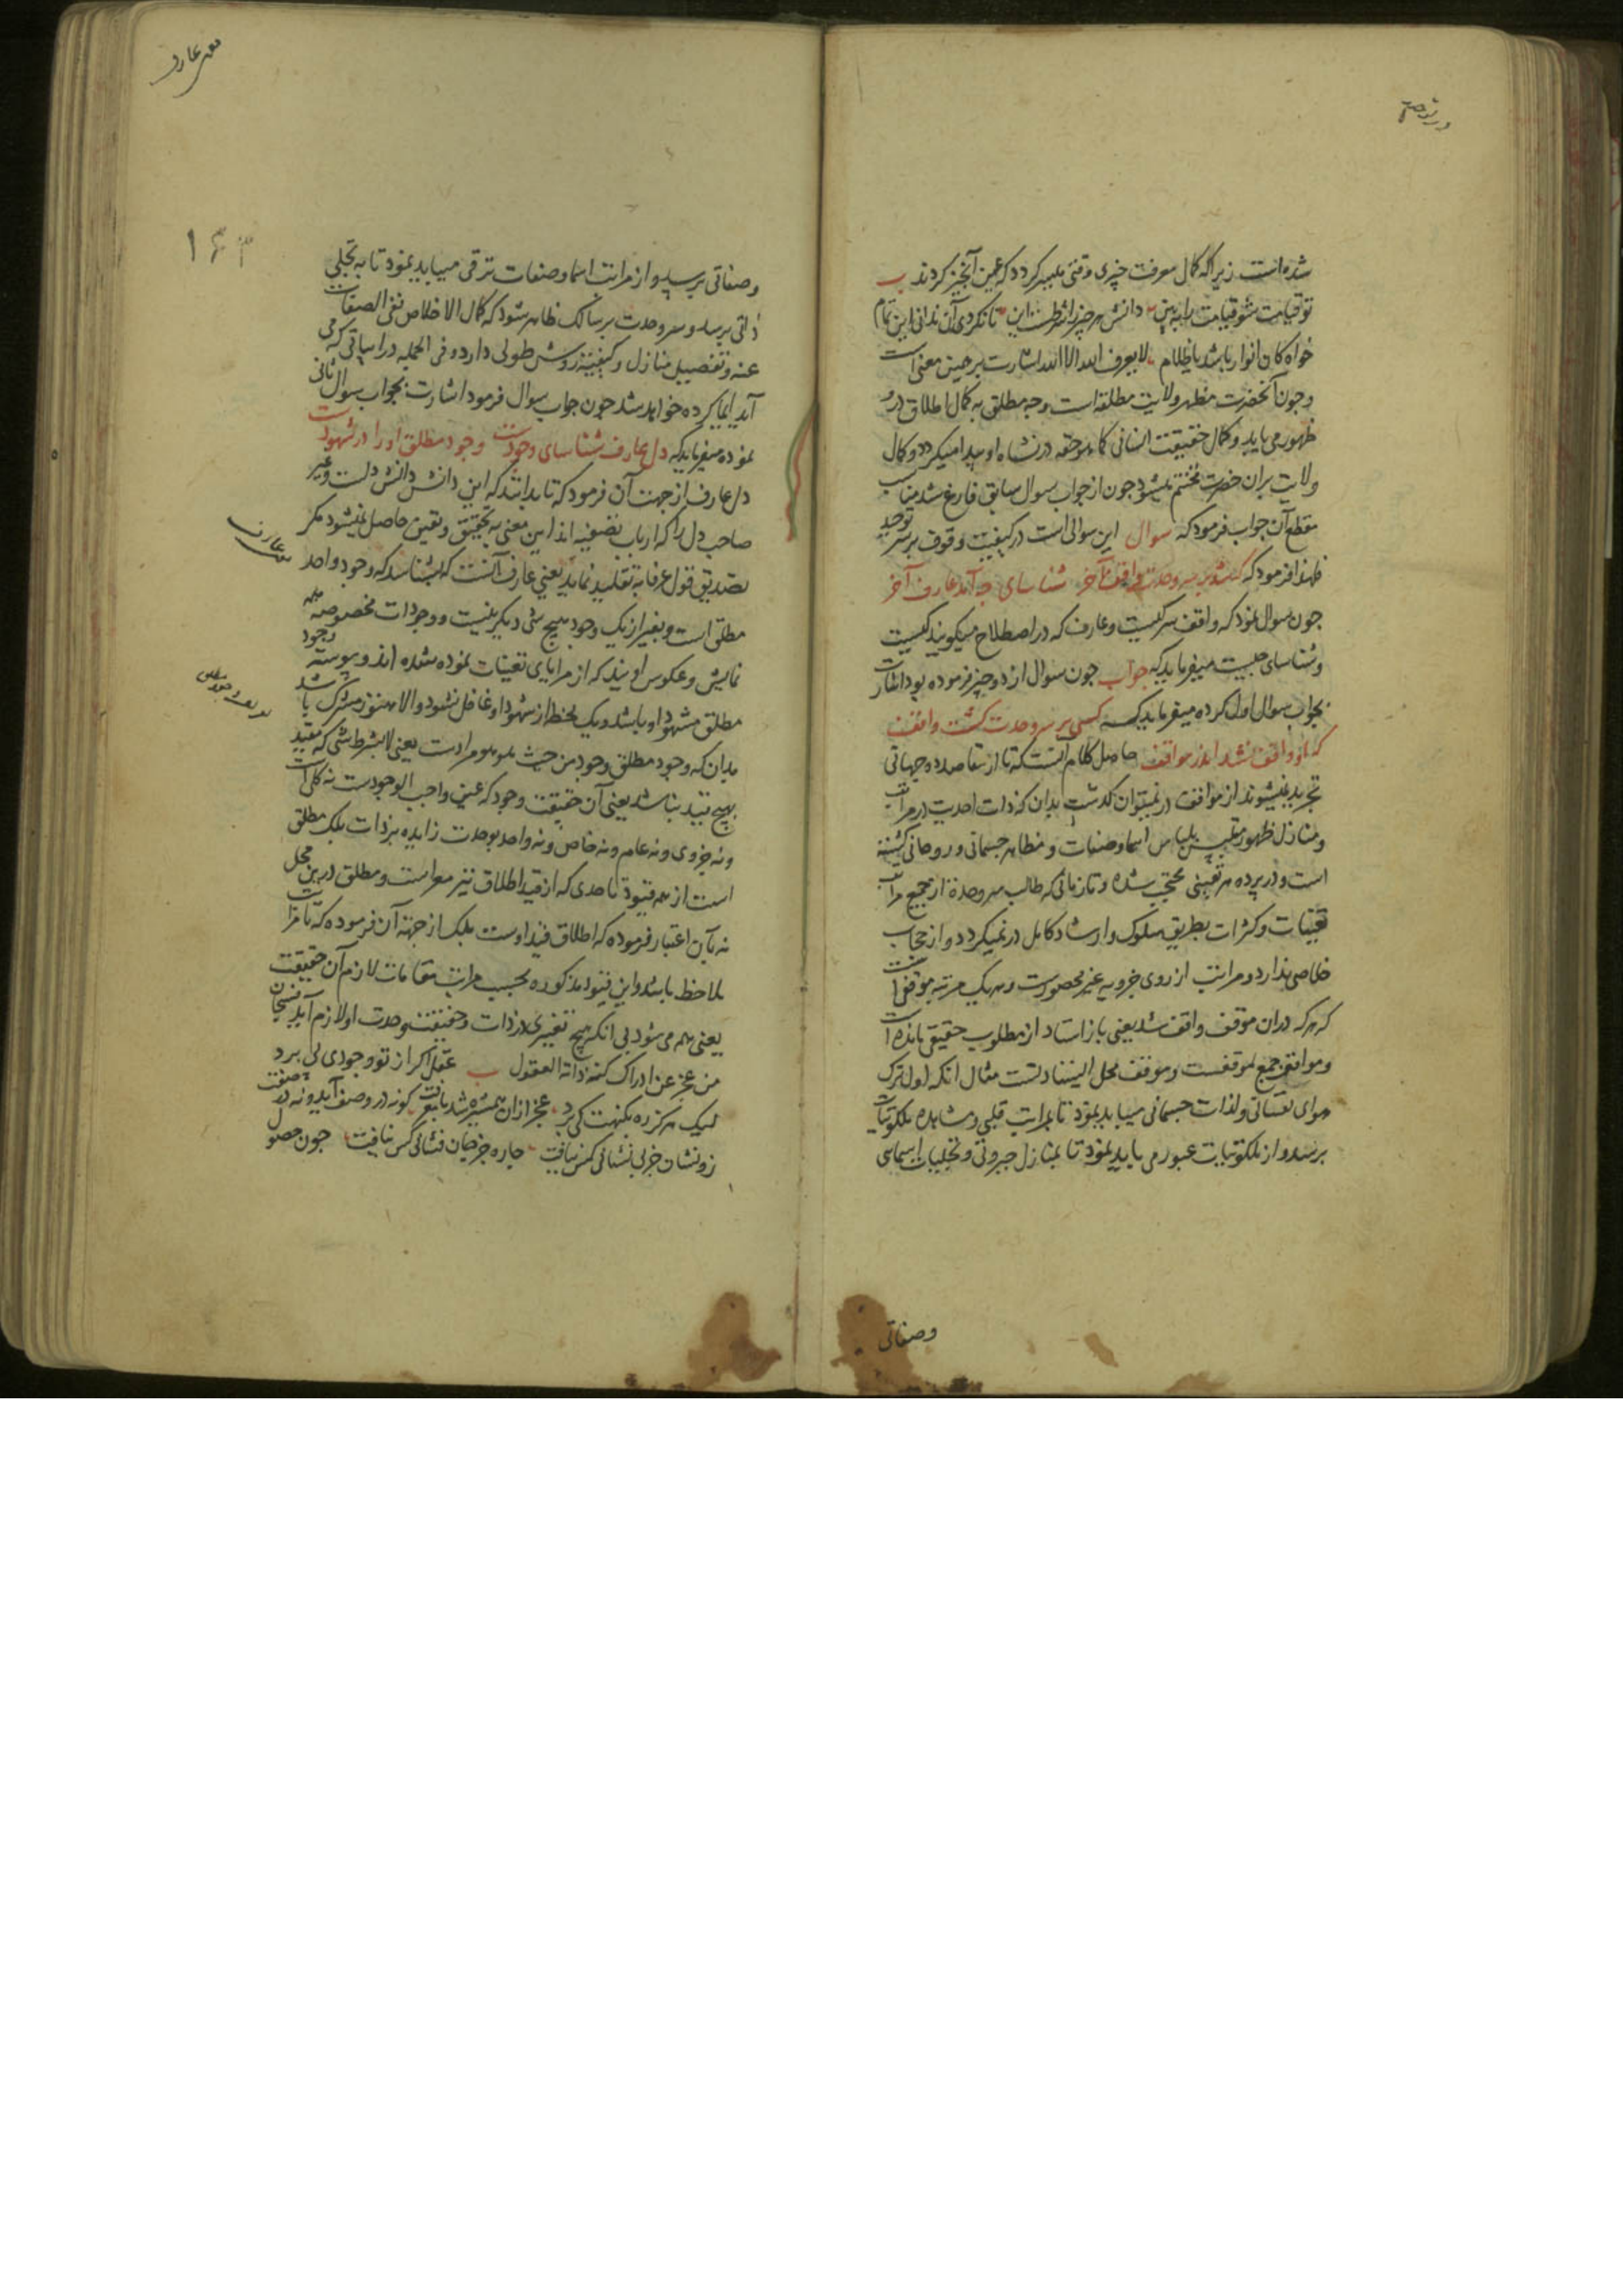 شده است زیرا که کمال معرفت چیزی وقتی میسر کردد که عین آنچیز کردند ب
تو قیامت شو قیامت را ببین دانش هر چیز را شرطست این تا نکردی آن ندانی این تمام
خواه کان انوار باشد یا ظلام لا یعرف الله الا الله اشارت بر همین معنی است
و چون آنحضرت مظهر ولایت مطلقه است وجه مطلق به کمال اطلاق درو
ظهور می یابد و کمال حقیقت انسانی کما هو حقه در نشاه او پیدا میکردد و کمال
ولایت بران حضرت مختتم میشود چون از جواب سوال سابق فارغ شد مناسب
مقطع آن جواب فرمود که سوال این سوالی است در کیفیت وقوف بر سر توحید
فلهذا فرمود که که شد بر سر وحدت واقف آخر شناسای چه آمد عارف آخر
چون سوال نمود که واقف سر کیست و عارف که در اصطلاح میکویند کیست
و شناسای چیست میفرماید که جواب چون سوال از دو چیز فرموده بود اشارت
بجواب سوال اول کرده میفرماید که کسی بر سر وحدت کشت واقف
که او واقف نشد اندر مواقف حاصل کلام آنست که تا از مقاصد دو جهانی
تجرید نمیشوند از مواقف در نمیتوان کذشت بدان که ذات احدیت در مراتب
و منازل ظهور متلبس بلباس اسما و صفات و مظاهر جسمانی و روحانی کشته
است و در پرده هر تعینی محتجب شده و تا زمانی که طالب سر وحدة از جمیع مراتب
تعینات و کثرات بطریق سلوک و ارشاد کامل در نمیکردد و از حجاب
خلاصی ندارد و مراتب از روی جزویه غیر محصورست و هر یک مرتبه موقفی است
که هر که دران موقف واقف شد یعنی باز استاد از مطلوب حقیقی بازمانده است
و مواقف جمع موقفست و موقف محل ایستادنست مثال انکه اول ترک
هوای نفسانی و لذات جسمانی میباید نمود تا بمراتب قلبی و مشاهده ملکوتیات
برسد و از ملکوتیات عبور می باید نمود تا بمنازل جبروتی و تجلیات اسمایی
وصفاتی
۱۶۳
وصفاتی برسد و از مراتب اسما و صفات ترقی میباید نمود تا به تجلی
ذاتی برسد و سر وحدت بر سالک ظاهر شود که کمال الاخلاص نفی الصفات
عنه و تفصیل منازل و کیفیت روش طولی دارد و فی الجمله در ابیاتی که می
آید ایما کرده خواهد شد چون جواب سوال فرمود اشارت بجواب سوال ثانی
نموده میفرماید که دل عارف شناسای وجودست وجود مطلق او را در شهودست
دل عارف از جهت آن فرمود که تا بدانند که این دانش دانش دلست و غیر
صاحب دل را که ارباب تصفیه اند این معنی به تحقیق و یقین حاصل نمیشود مکر
تصدیق قول عرفا به تقلید نماید یعنی عارف آنست که بشناسد که وجود واحد
مطلق است و بغیر از یک وجود هیچ شی دیکر نیست و وجودات مخصوصه همه
نمایش و عکوس اویند که از مرایای تعینات نموده شده اند و پیوسته وجود
مطلق مشهود او باشد و یک لحظه از شهود او غافل نشود و الا هنوز مشرک باشد
بدان که وجود مطلق وجود من حیث هو هو مرادست یعنی لا بشرط شی که مقید
بهیچ قید نباشد یعنی آن حقیقت وجود که عین واجب الوجودست نه کلی است
و نه جزوی و نه عام و نه خاص و نه واحد بوحدت زایده بر ذات بلک مطلق
است از همه قیود تا حدی که از قید اطلاق نیز معراست و مطلق درین محل
نه بآن اعتبار فرموده که اطلاق قید اوست بلک از جهة آن فرموده که تا مراتب
ملاحظ باشد و این قیود مذکوره بحسب مراتب و مقامات لازم آن حقیقت
یعنی همه می شود بی انکه هیچ تغییری در ذات و حقیقت وحدت او لازم آید فسبحان
من عجز عن ادراک کنه ذاته العقول ب عقل اکر از تو وجودی پی برد
لیک هرکز ره بکنهت کی برد عجز ازان همشیره شد با معرفت کو نه در وصف آید و نه در صفت
زو نشان جز بی نشانی کس نیافت چاره جز جان فشانی کس نیافت چون حصول